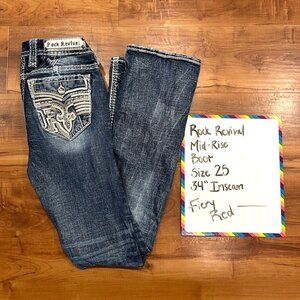 Rock Revival
Rock Revival
Mid-Rise
Boot
Size 25
34" Inseam
Fiery
Red